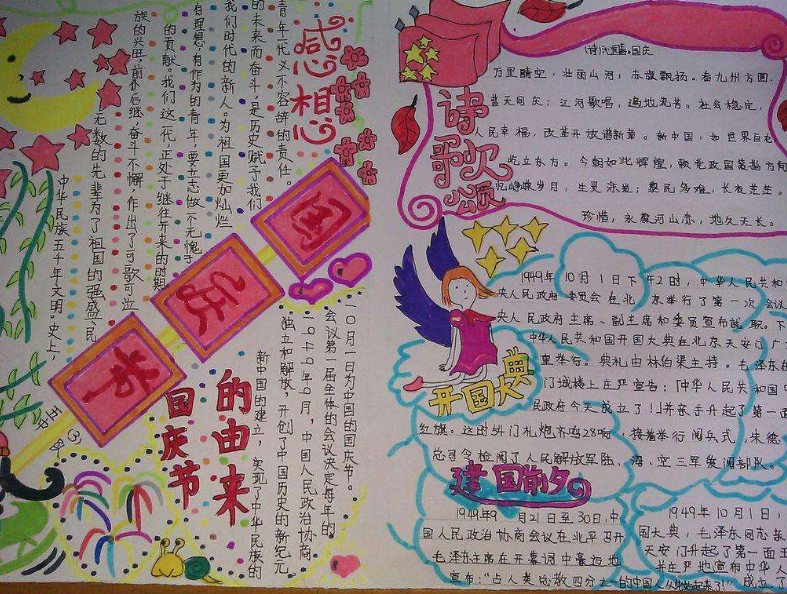 感想
中华民族五千年文明史上，
无数的先辈为了祖国的强盛、民
族的兴旺前仆后继，奋斗不懈，作出了可歌可泣
的贡献。我们这一代，正处于继往开来的时期
有理想、有作为的青年，要立志做个无愧于
我们时代的新人。为祖国更加灿烂
的未来而奋斗，是历史赋予我们
青年一代义不容辞的责任。
国
庆
节
国庆节
的由来
10月1日为中国的国庆节。
会议第一届全体的会议决定每年的
一九四九年9月，中国人民政治协商
独立和解放，开创了中国历史的新纪元
新中国的建立，实现了中华民族的
诗歌颂
万里晴空，壮丽山河，赤旗飘扬。看九州方圆，
普天同庆；江河歌唱，遍地流芳。社会稳定，
人民幸福，改革开放谱新章。新中国，如世界巨
屹立东方。今朝如此辉煌，
峥嵘岁月，生灵涂炭；黎民多难，长夜茫茫。
珍惜，永葆河山亦，地久天长。
开国大典
1949年10月1日下午2时，中华人民共和
央人民政府委员会在北京举行了第一次会议
央人民政府主席、副主席和委员宣布就职。下
中华人民共和国开国大典在北京天安门广
重举行。典礼由林伯渠主持。毛泽东在
门城楼上庄严宣告：「中华人民共和国
民政府今天成立了！」并亲手升起了第一面
红旗。这时54门礼炮齐鸣28响，接着举行阅兵式，朱德
总司令检阅了人民解放军陆、海、空三军受阅部队。
建国前夕
1949年9月21日至30日，中
国人民政治协商会议在北平召开
毛泽东主席在开幕词中豪迈地
宣布："占人类总数四分之一的中国人从此站起来了！"
1949年10月1日，
国大典，毛泽东同志亲
天安门升起了第一面五
并庄严地宣布中华人
成立了